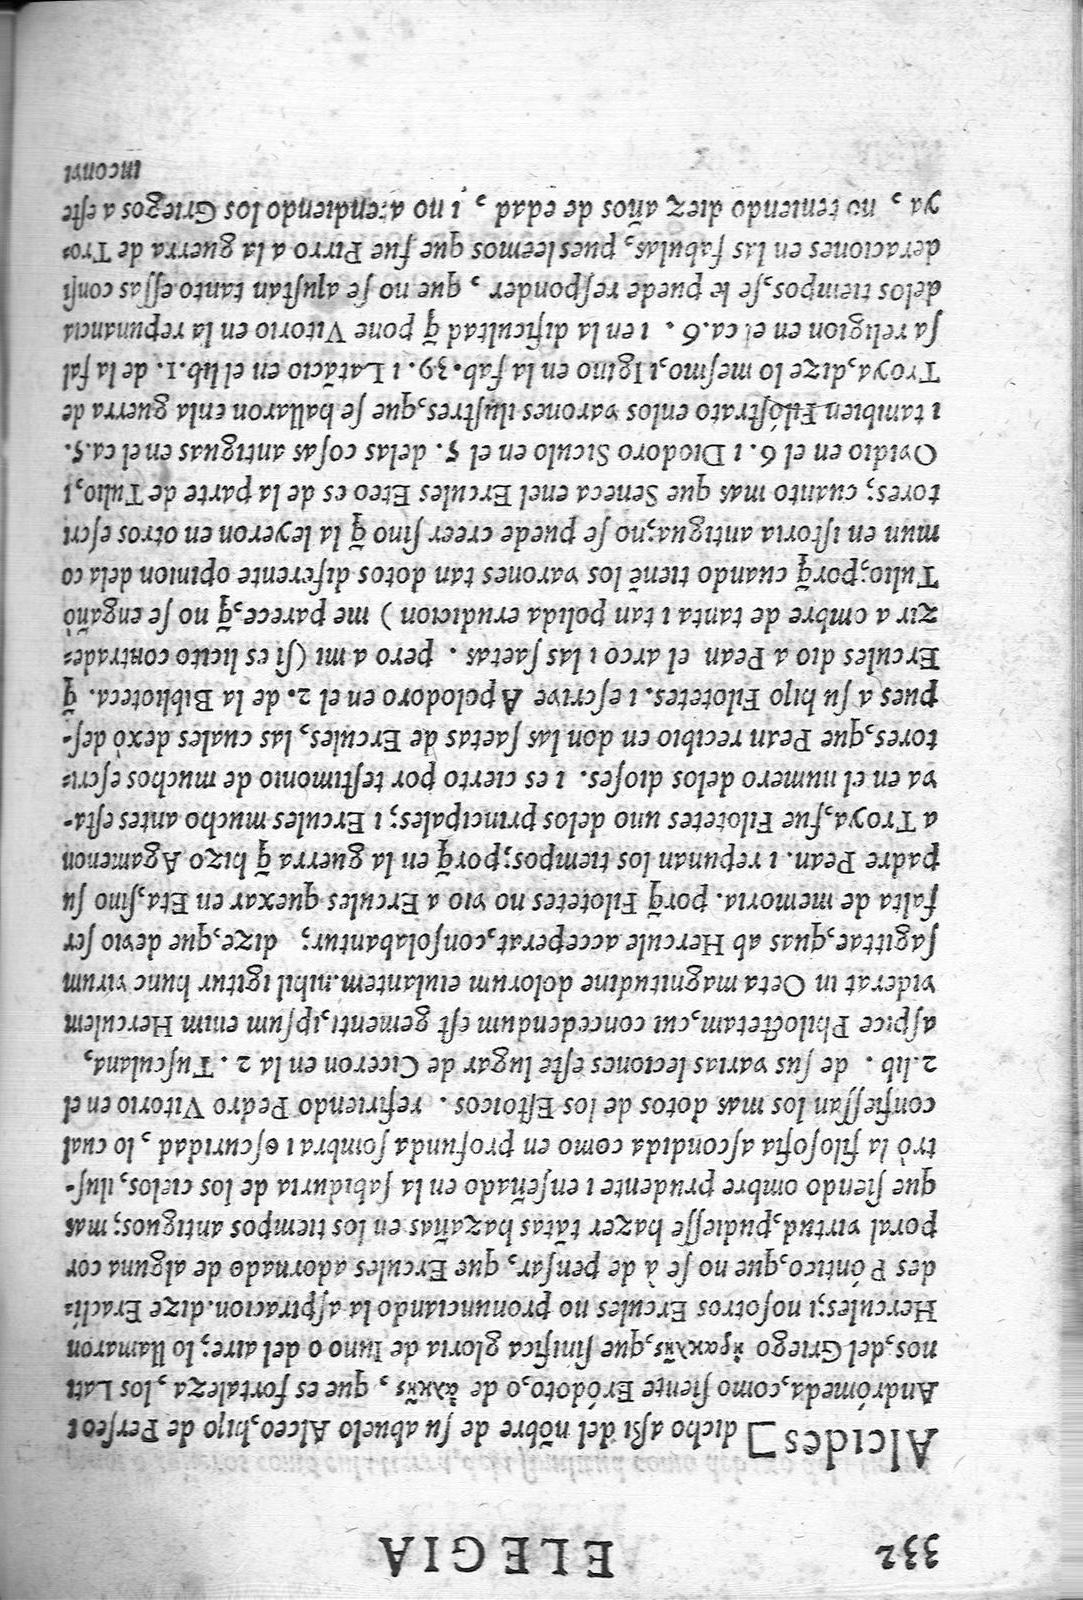 332 ELEGIA
Alcides] dicho aßi del nõbre de su abuelo Alceo,hijo de Perseo i
Andrómeda,como siente Eródoto,o de ἀλκῆς, que es fortaleza, los Lati
nos,del Griego ἡρακλῆς,que sinifica gloria de Iuno o del aire; lo llamaron
Hercules;i nosotros Ercules no pronunciando la aspiracion.dize Eracli=
des Póntico,que no se à de pensar, que Ercules adornado de alguna cor
poral virtud,pudiesse hazer tãtas hazañas en los tiempos antiguos; mas
que siendo ombre prudente i enseñado en la sabiduria de los cielos, ilus-
trò la filosofia ascondida como en profunda sombra i escuridad, lo cual
confiessan los mas dotos de los Estoicos. refiriendo Pedro Vitorio en el
2.lib. de sus varias leciones este lugar de Ciceron en la 2. Tusculana,
aspice Philoctetam,cui concedendum est gementi,ipsum enim Herculem
viderat in Oeta magnitudine dolorum eiulantem.nihil igitur hunc virum
sagittae,quas ab Hercule acceperat,consolabantur; dize,que devio ser
falta de memoria. porq̃ Filotetes no vio a Ercules quexar en Eta,sino su
padre Pean. i repunan los tiempos;porq̃ en la guerra q̃ hizo Agamenon
a Troya,fue Filotetes uno delos principales; i Ercules mucho antes esta-
va en el numero delos dioses. i es cierto por testimonio de muchos escri=
tores,que Pean recibio en don las saetas de Ercules, las cuales dexò des-
pues a su hijo Filotetes. i escrive Apolodoro en el 2. de la Biblioteca. q̃
Ercules dio a Pean el arco i las saetas. pero a mi (si es licito contrade=
zir a ombre de tanta i tan polida erudicion) me parece,q̃ no se engañò
Tulio;porq̃ cuando tienẽ los varones tan dotos diferente opinion dela co
mun en istoria antigua;no se puede creer sino q̃ la leyeron en otros escri
tores; cuanto mas que Seneca enel Ercules Eteo es de la parte de Tulio,i
Ovidio en el 6. i Diodoro Siculo en el 5. delas cosas antiguas en el ca.5.
i tambien Filóstrato enlos varones ilustres,que se hallaron enla guerra de
Troya,dize lo mesmo,i Igino en la fab.39. i Latãcio en el lib.1. de la fal
sa religion en el ca.6. i en la dificultad q̃ pone Vitorio en la repunancia
delos tiempos,se le puede responder, que no se ajustan tanto essas consi
deraciones en las fabulas, pues leemos que fue Pirro a la guerra de Tro=
ya, no teniendo diez años de edad, i no atendiendo los Griegos a este
inconvi